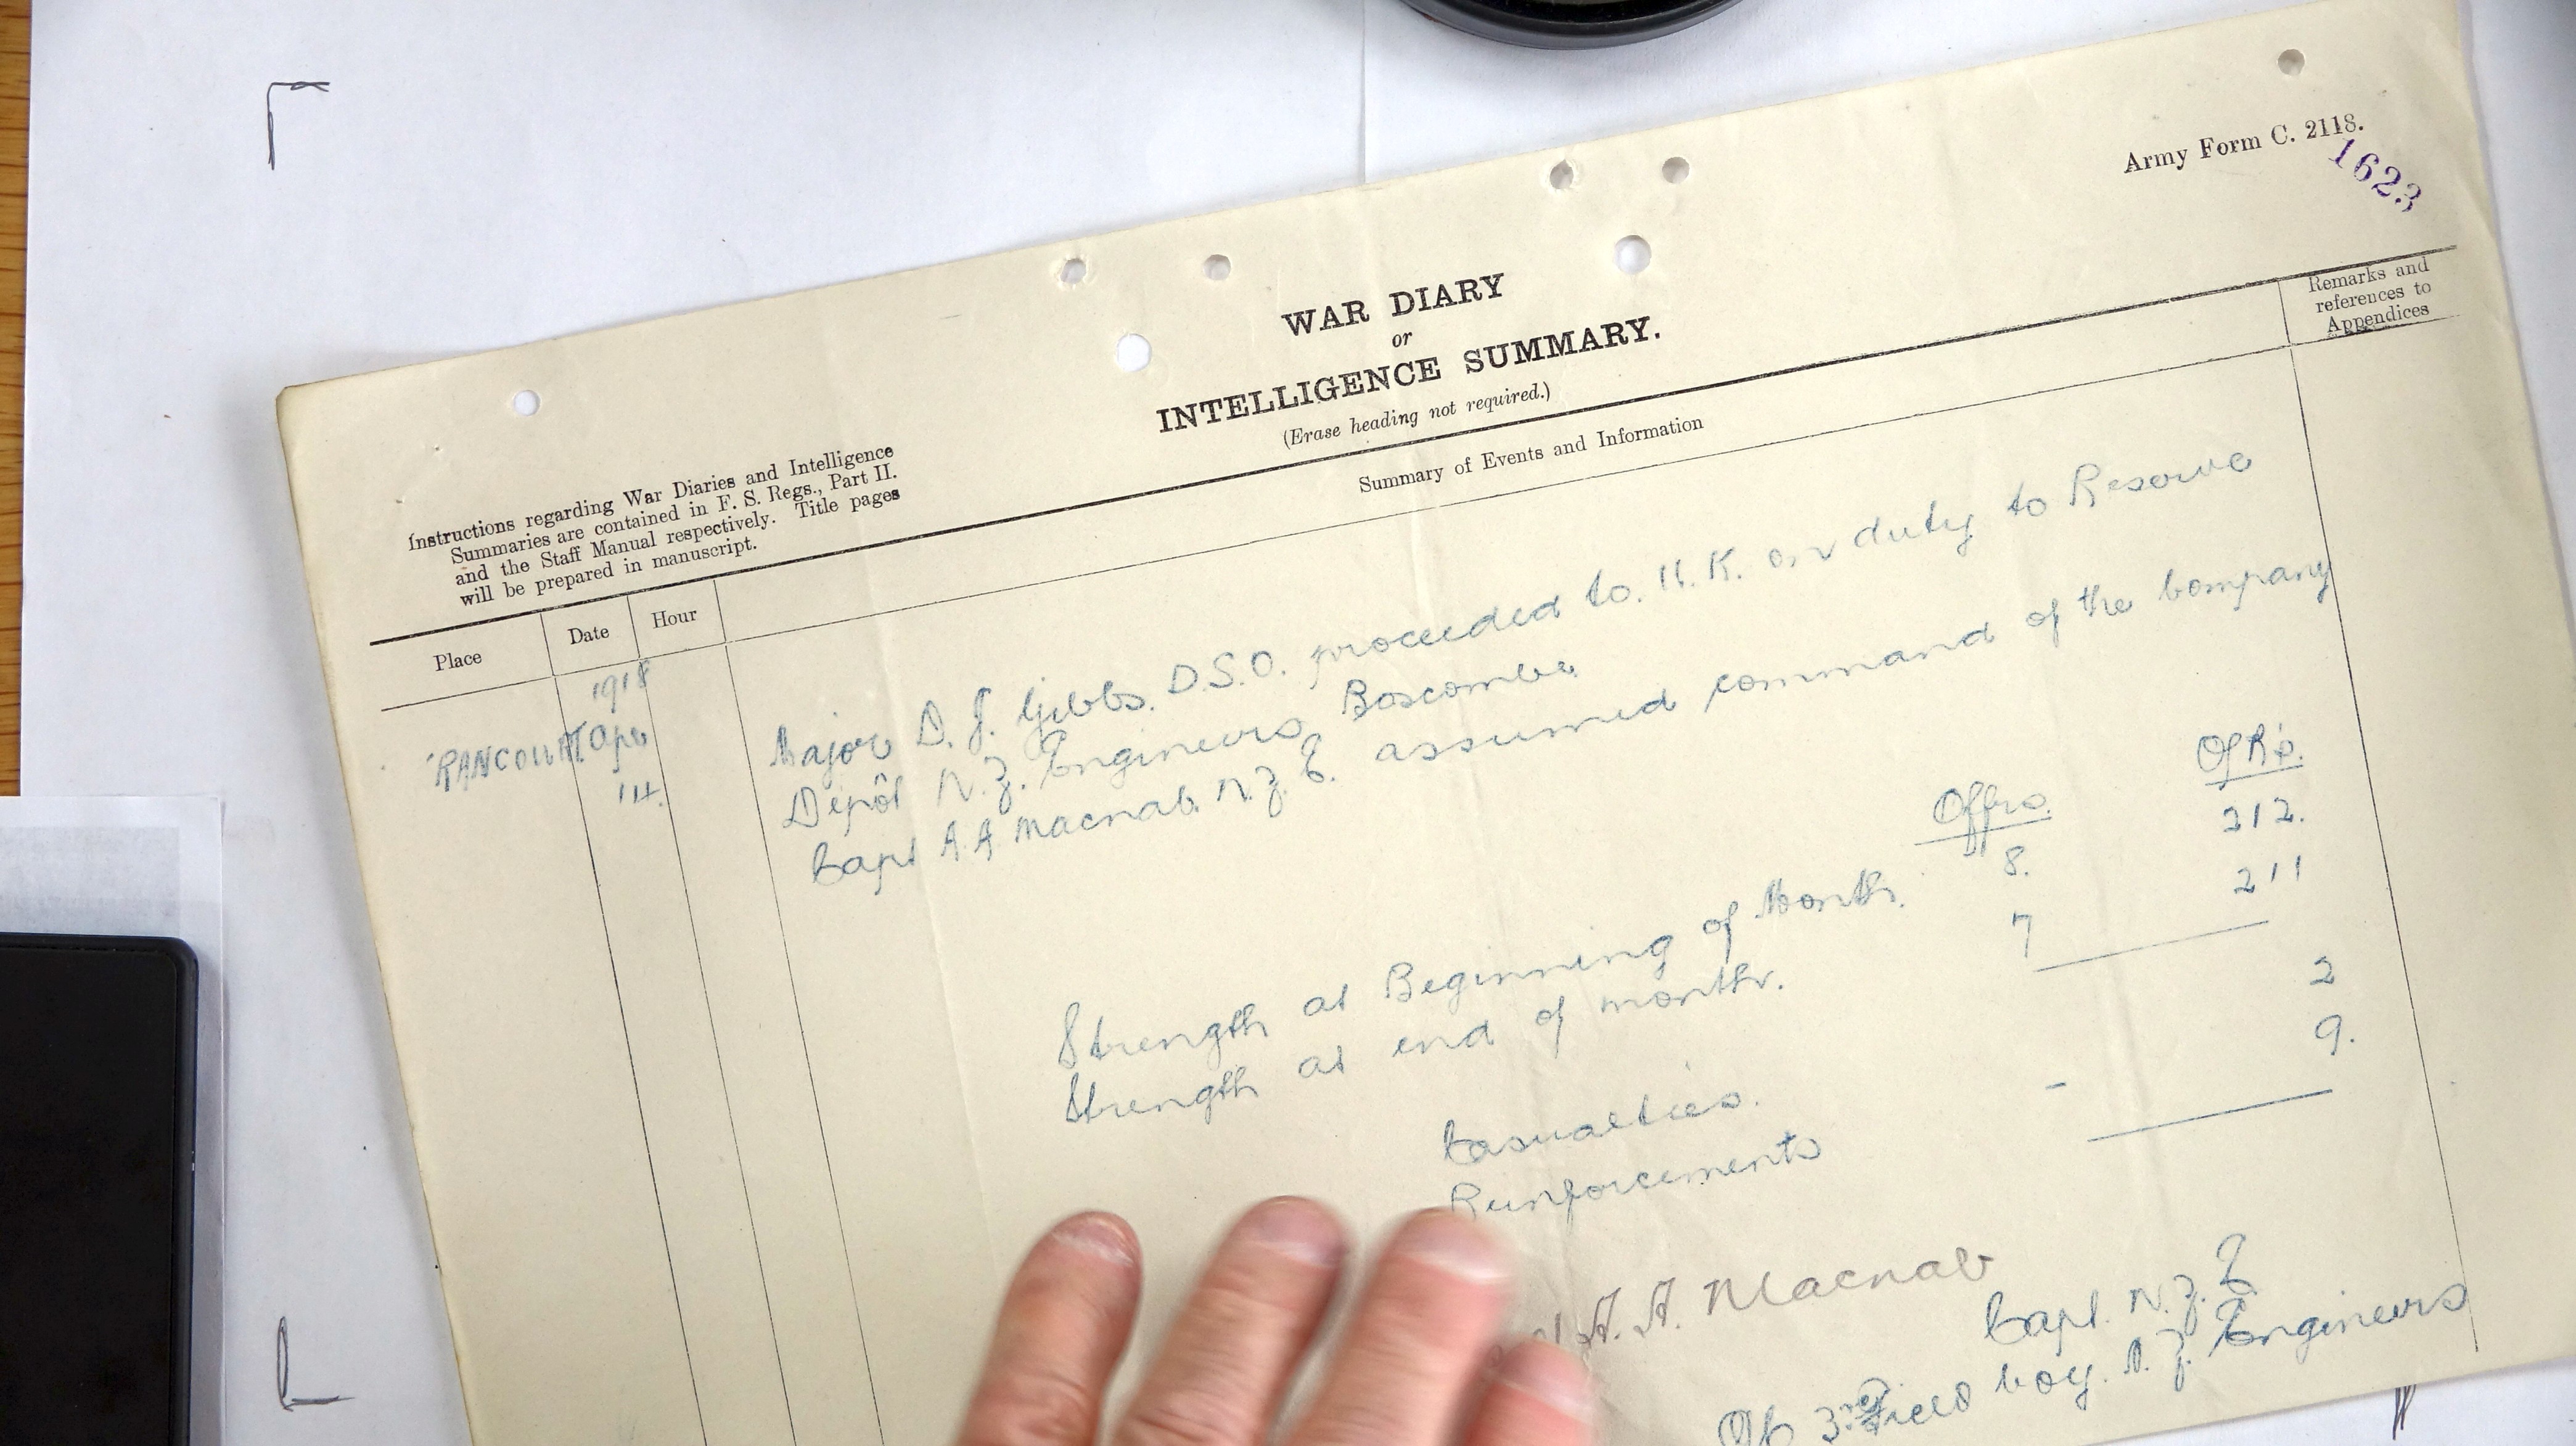 Army Form C. 2118.
1623
WAR DIARY
or
INTELLIGENCE SUMMARY.
(Erase heading not required.)
Instructions regarding War Diaries and Intelligence
Summaries are contained in F. S. Regs., Part II.
and the Staff Manual respectively. Title pages
will be prepared in manuscript.
Place Date Hour Summary of Events and Information Remarks and
references to
Appendices
1918
RANCOURT Apr
14. Major D. J. Gibbs. D.S.O. proceeded to. U.K. on duty to Reserve
Depôt N.Z. Engineers Boscombe.
Capt A A Macnab. N.Z.E. assumed command of the Company
Offrs. O/R's.
Strength at Beginning of Month. 8. 212.
Strength at end of month. 7 211
Casualties. 2
Reinforcements - 9.
A. A. Macnab
Capt. N.Z.E
3rd Field Coy. N.Z. Engineers